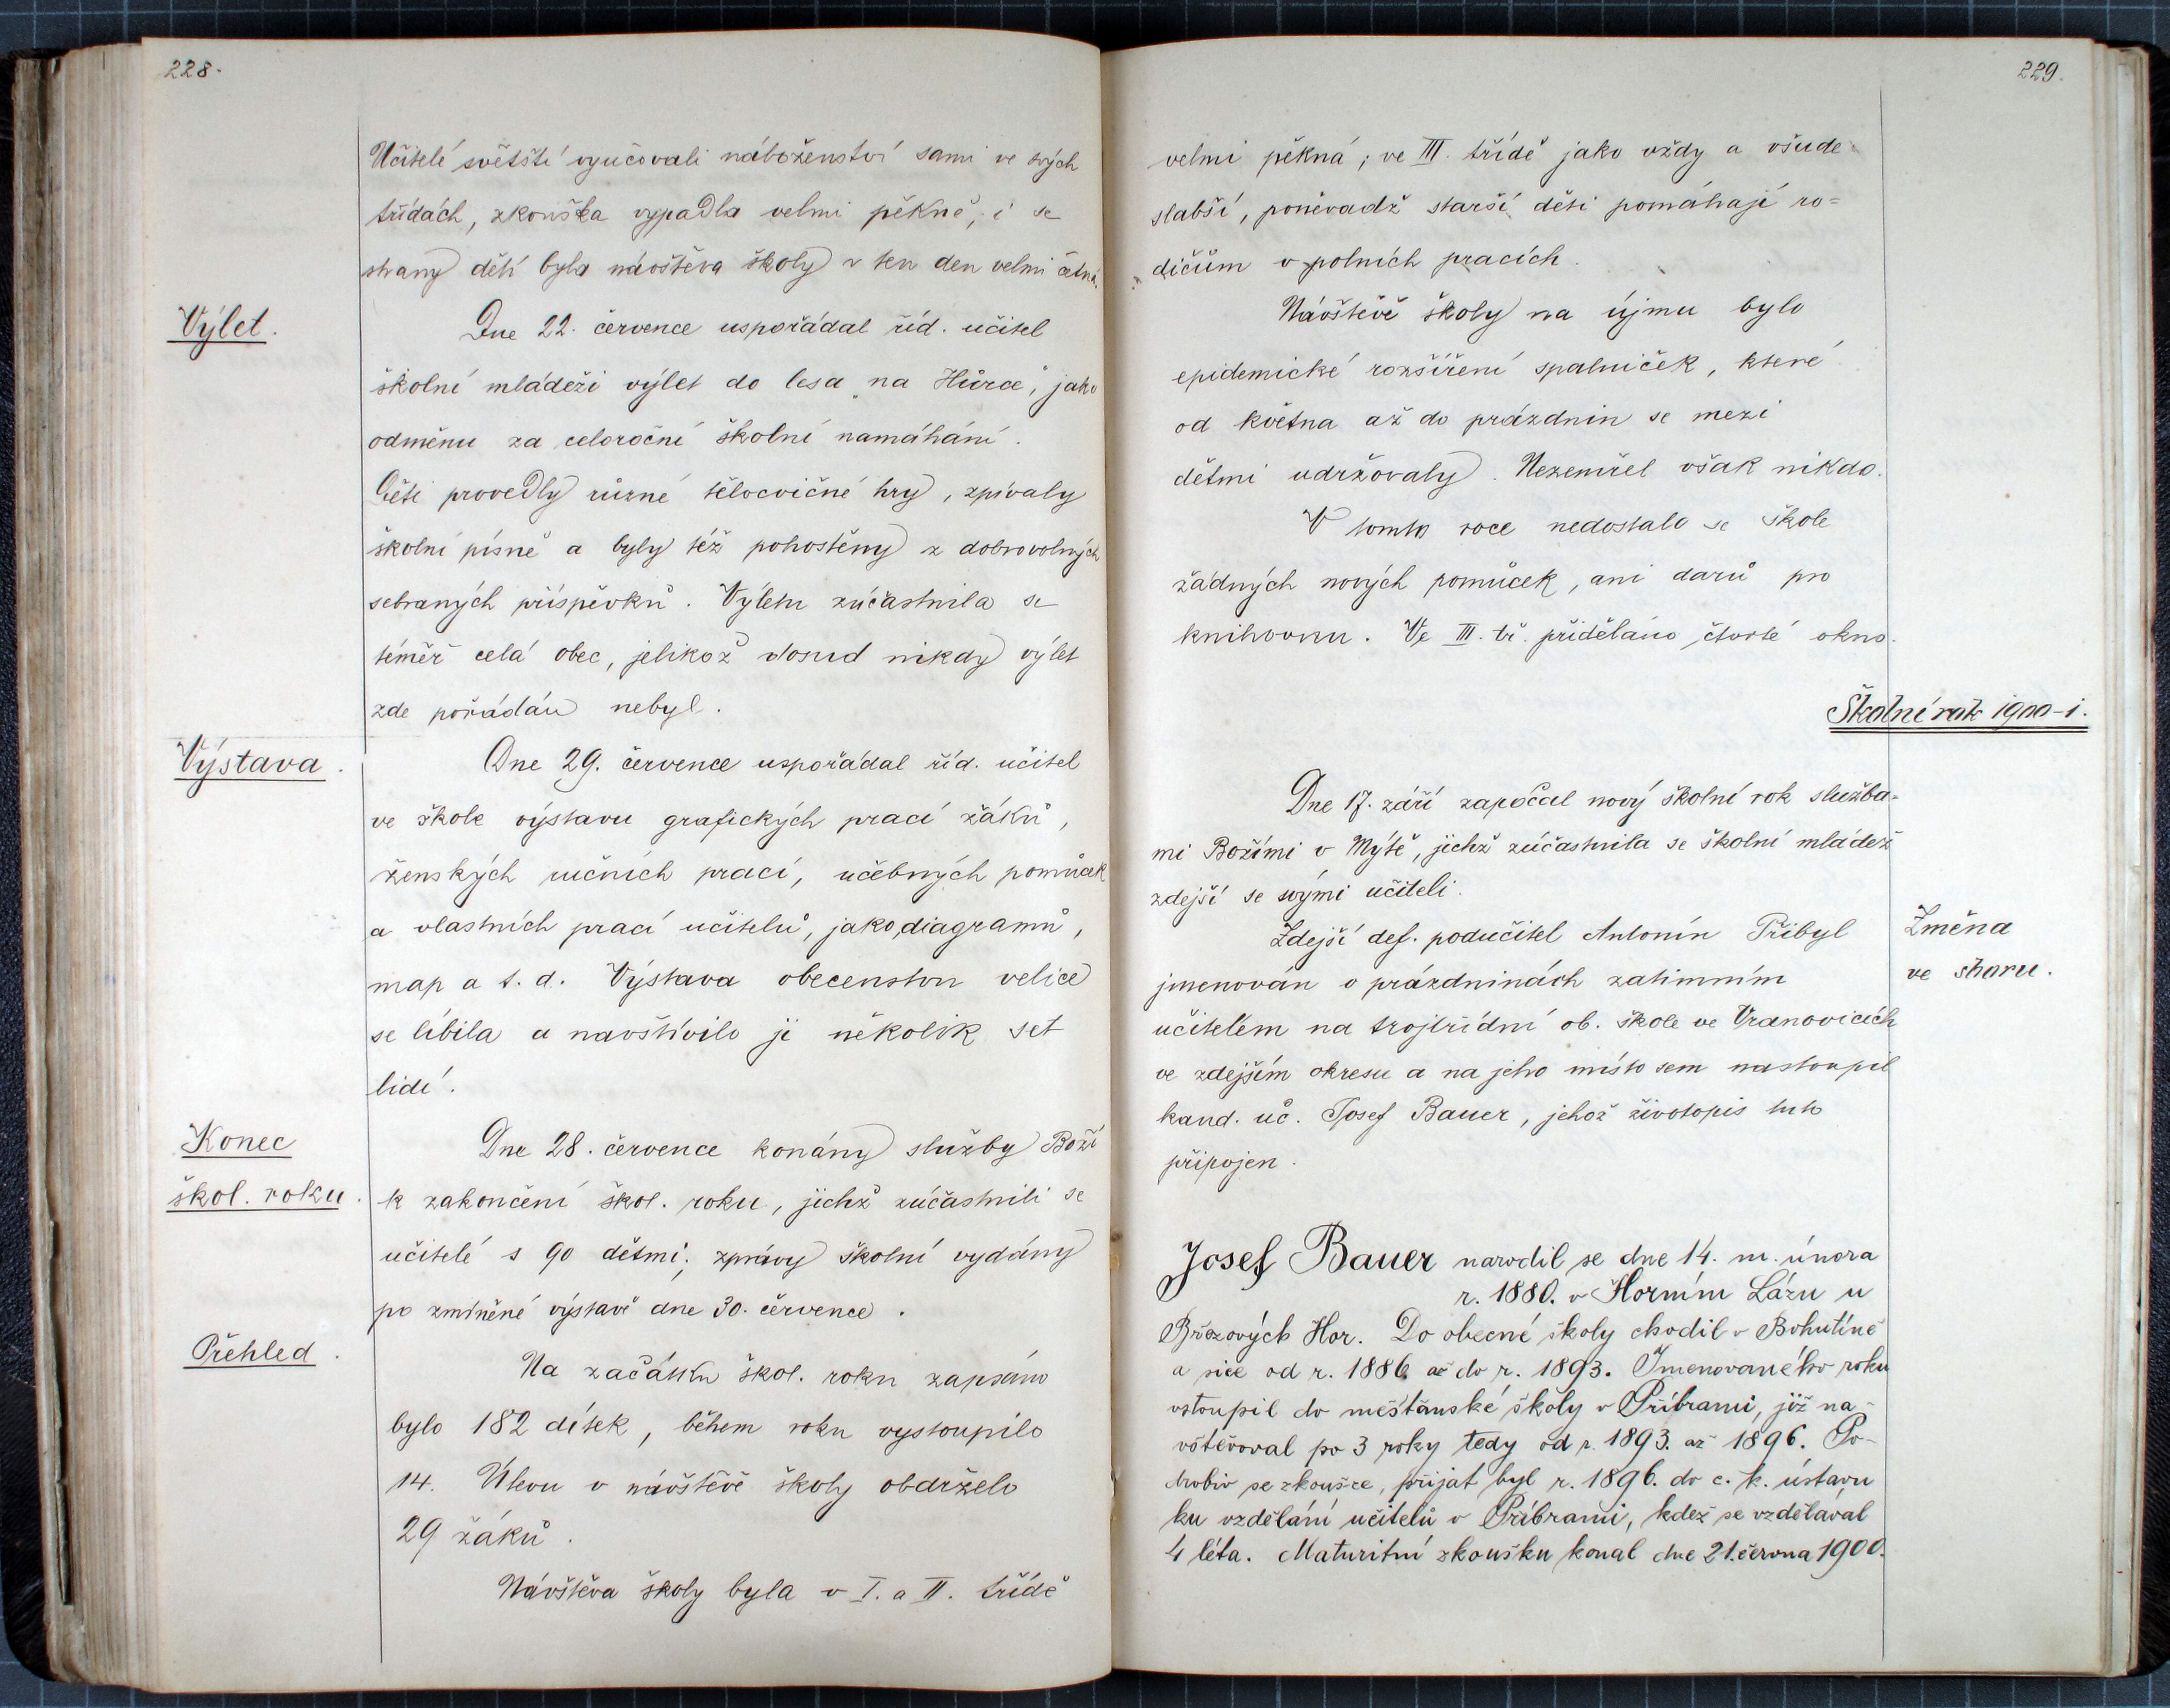 228.
Učitelé světští vyučovali náboženství sami ve svých
třídách, zkouška vypadla velmi pěkně, i se
strany dětí byla návštěva školy v ten den velmi četná.
Výlet.
Dne 22. července uspořádal říd. učitel
školní mládeži výlet do lesa „na Hůrce", jako
odměnu za celoroční školní namáhání.
Děti provedly různé tělocvičné hry, zpívaly
školní písně a byly též pohostěny z dobrovolných
sebraných příspěvků. Výletu zúčastnila se
téměř celá obec, jelikož dosud nikdy výlet
zde pořádán nebyl.
Výstava.
Dne 29. července uspořádal říd. učitel
ve škole výstavu grafických prací žáků,
ženských ručních prací, učebných pomůcek
a vlastních prací učitelů, jako diagramů,
map a t. d. Výstava obecenstvu velice
se líbila a navštívilo ji několik set
lidí.
Konec
škol. roku.
Dne 28. července konány služby Boží
k zakončení škol. roku, jichž zúčastnili se
učitelé s 90 dětmi; zprávy školní vydány
po zmíněné výstavě dne 30. července.
Přehled.
Na začátku škol. roku zapsáno
bylo 182 dítek, během roku vystoupilo
14. Úlevu v návštěvě školy obdrželo
29 žáků.
Návštěva školy byla v I. a II. třídě
229.
velmi pěkná; ve III. třídě jako vždy a všude
slabší, poněvadž starší děti pomáhají ro=
dičům v polních pracích.
Návštěvě školy na újmu bylo
epidemické rozšíření spalniček, které
od května až do prázdnin se mezi
dětmi udržovaly. Nezemřel však nikdo.
V tomto roce nedostalo se škole
žádných nových pomůcek, ani darů pro
knihovnu. Ve III. tř. přiděláno čtvrté okno.
Školní rok 1900-1.
Dne 17. září započal nový školní rok služba=
mi Božími v Mýtě, jichž zúčastnila se školní mládež
zdejší se svými učiteli.
Změna
ve sboru.
Zdejší def. podučitel Antonín Přibyl
jmenován o prázdninách zatimním
učitelem na trojtřídní ob. škole ve Vranovicích
ve zdejším okresu a na jeho místo sem nastoupil
kand. uč. Josef Bauer, jehož životopis tuto
připojen.
Josef Bauer narodil se dne 14. m. února
r. 1880. v Horním Lázu u
Březových Hor. Do obecné školy chodil v Bohutíně
a sice od r. 1886. až do r. 1893. Jmenovaného roku
vstoupil do měšťanské školy v Příbrami, již na-
vštěvoval po 3 roky tedy od r. 1893. až 1896. Po-
drobiv se zkoušce, přijat byl r. 1896. do c. k. ústavu
ku vzdělání učitelů v Příbrami, kdež se vzdělával
4 léta. Maturitní zkoušku konal dne 21. června 1900.